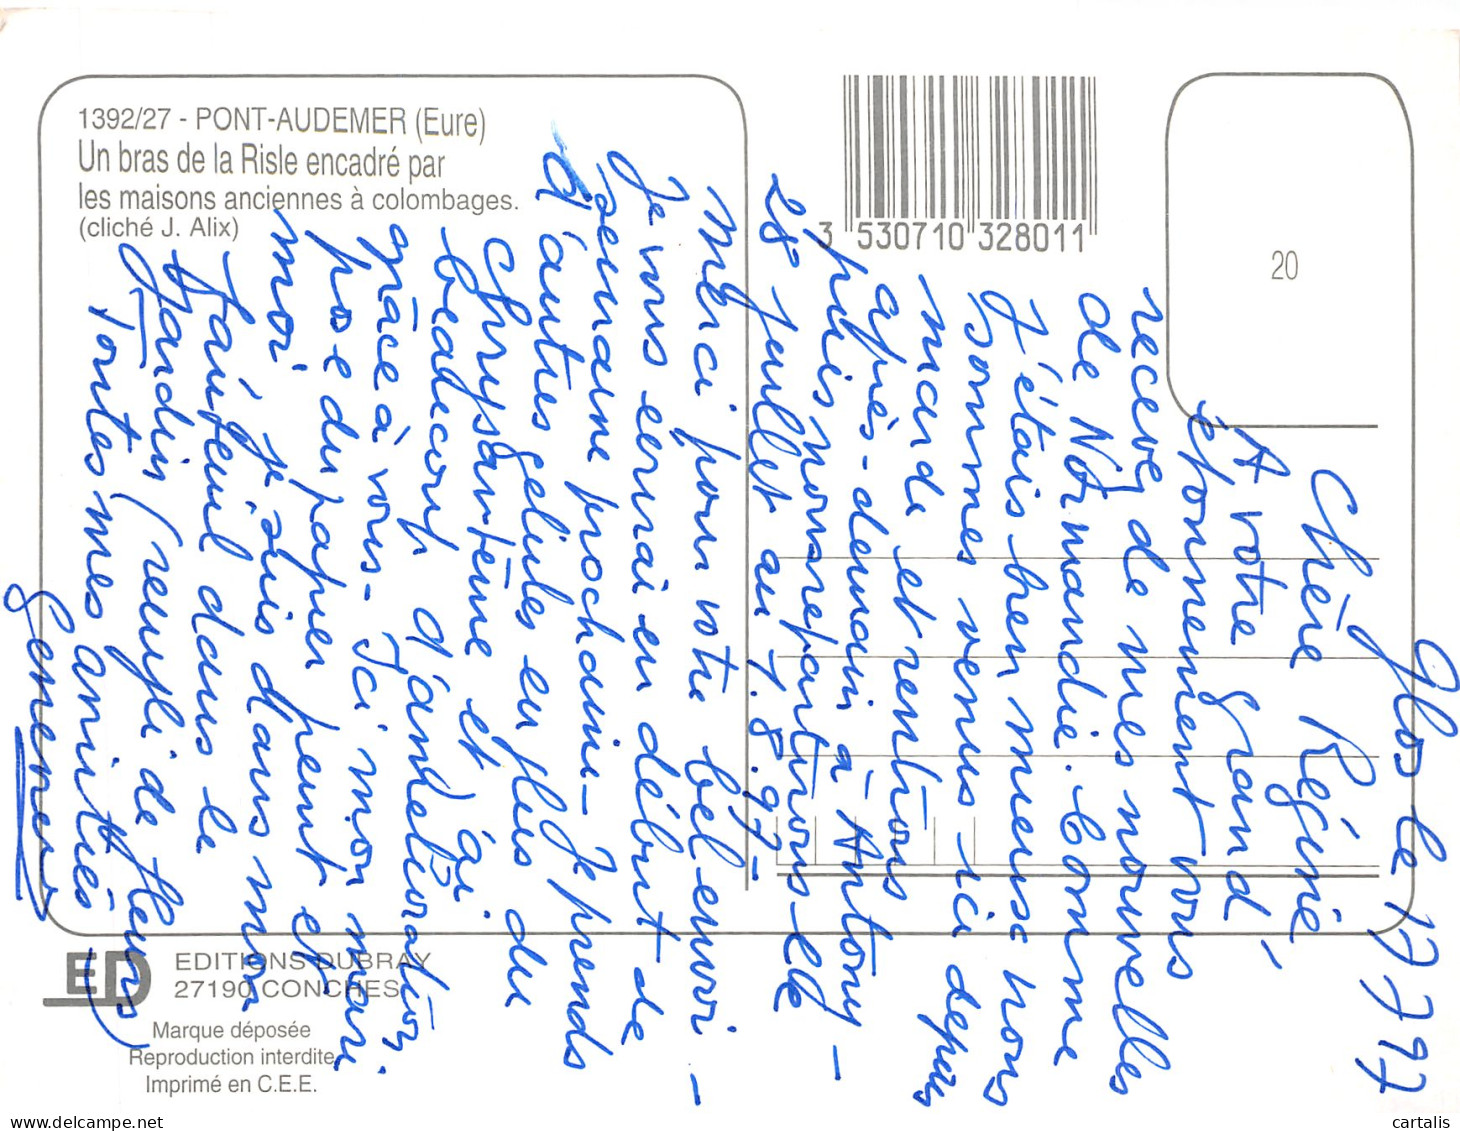 1392/27 - PONT-AUDEMER (Eure)
Un bras de la Risle encadré par
les maisons anciennes à colombages.
(cliché J. Alix)
3 530710 328011
20
Glos le 17 7 97
Chère Régine,
A votre grand
étonnement vous
recevez de mes nouvelles
de Normandie. Comme
j'étais bien mieux nous
sommes venus ici depuis
mardi et rentrons
après-demain à Antony -
puis nous repartirons le
28 juillet au 7.8.97 -
Merci pour votre bel envoi -
Je vous verrai en début de
semaine prochaine - Je prends
d'autres gélules en plus du
chrysantème et qui
beaucoup d'amélioration
grâce à vous - Ici mon mari
pose du papier peint et
moi je suis dans mon
fauteuil dans le
jardin (rempli de fleurs)
Toutes mes amitiés
ED
EDITIONS DUBRAY
27190 CONCHES
Marque déposée
Reproduction interdite
Imprimé en C.E.E.
cartalis